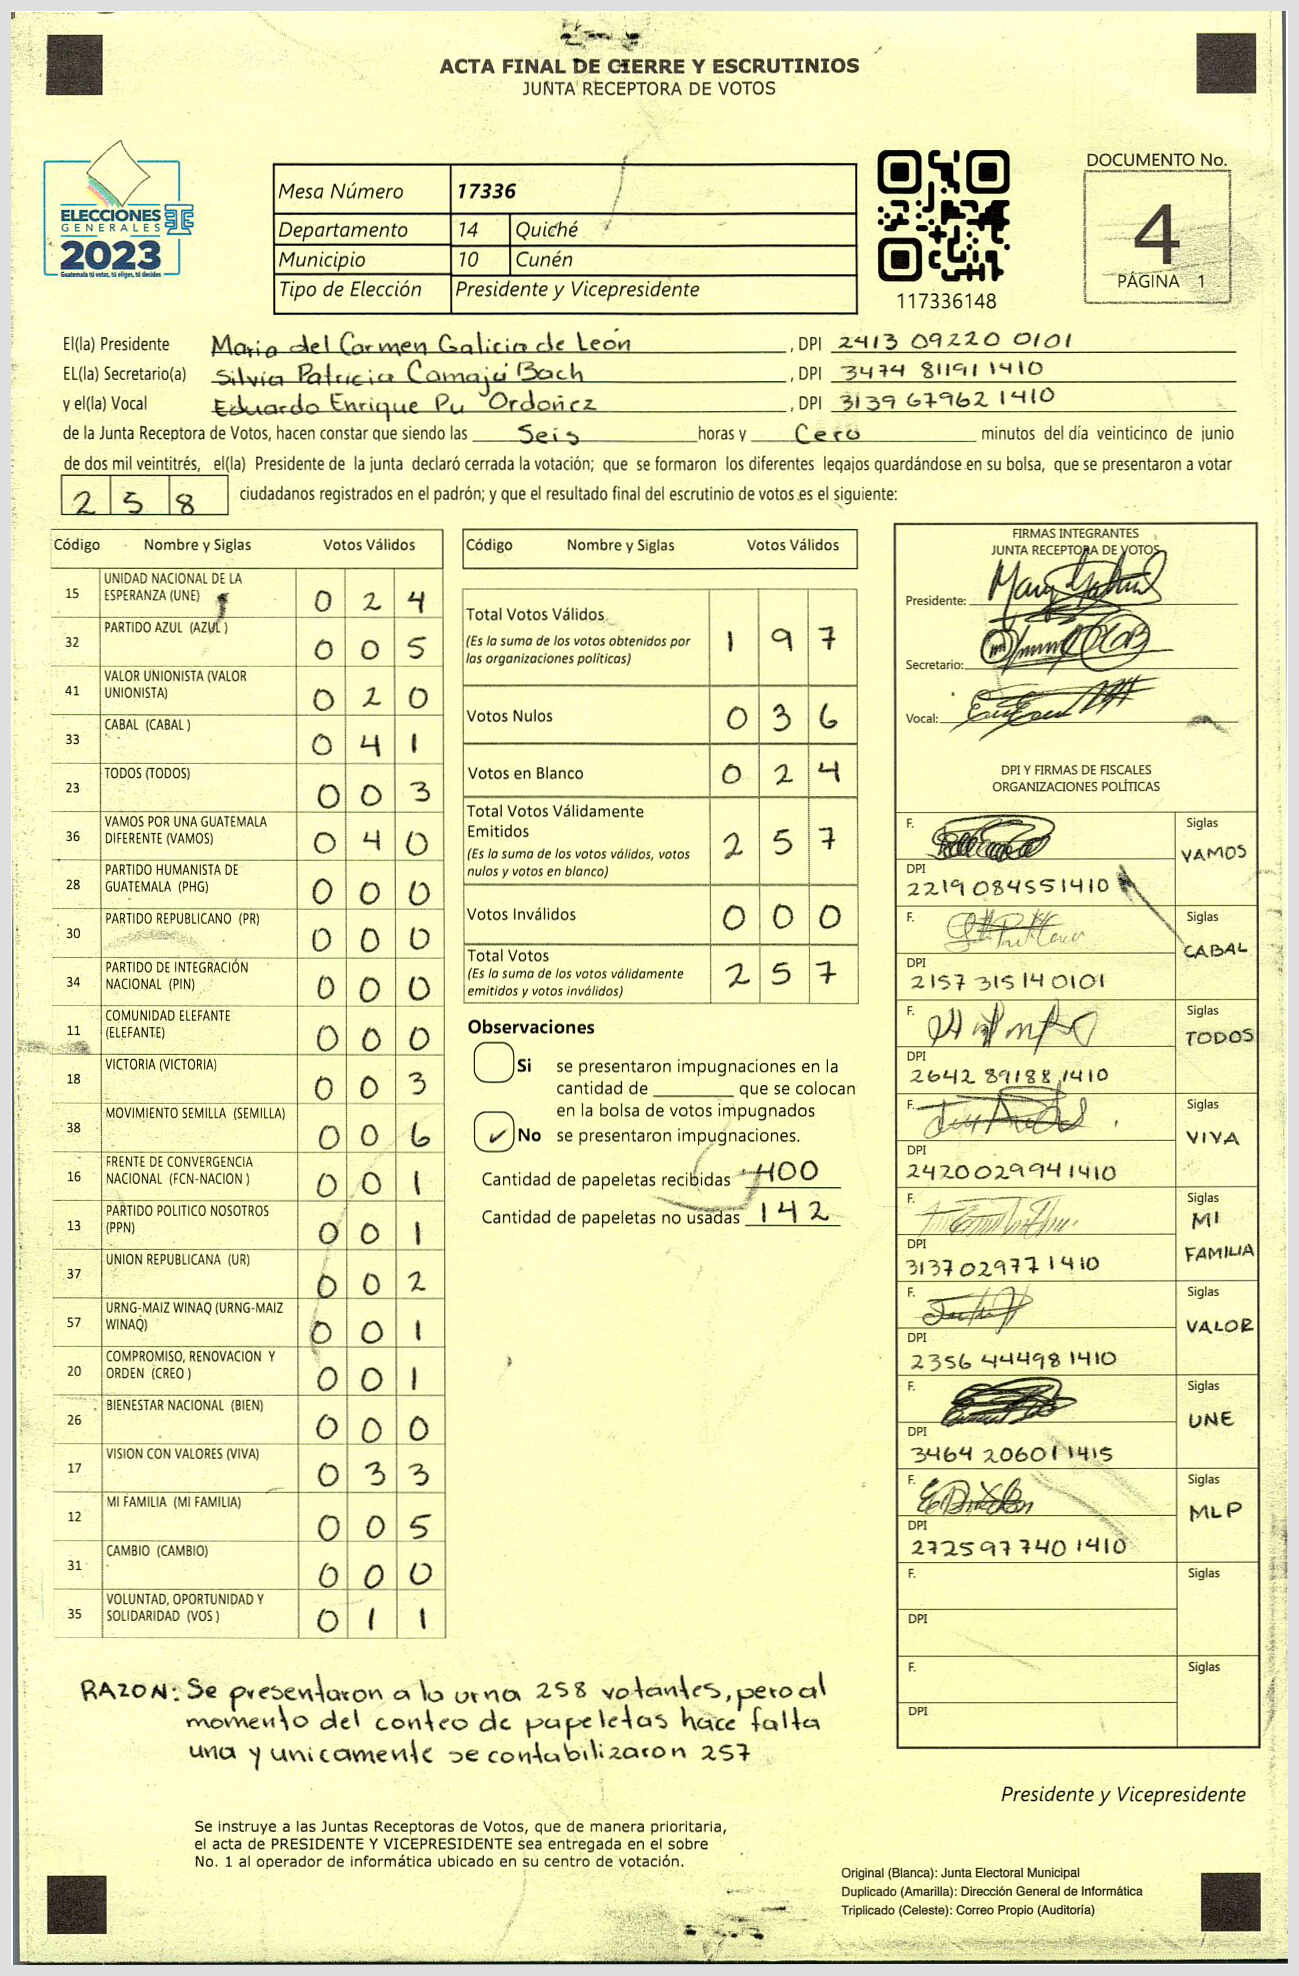 ACTA FINAL DE CIERRE Y ESCRUTINIOS
JUNTA RECEPTORA DE VOTOS
ELECCIONES
GENERALES
2023
Guatemala tú votas, tú eliges, tú decides
Mesa Número 17336
Departamento 14 Quiché
Municipio 10 Cunén
Tipo de Elección Presidente y Vicepresidente
117336148
DOCUMENTO No.
4
PÁGINA 1
El(la) Presidente Maria del Carmen Galicia de León, DPI 2413 09220 0101
EL(la) Secretario(a) Silvia Patricia Camajú Bach, DPI 3474 81191 1410
y el(la) Vocal Eduardo Enrique Pu Ordoñez, DPI 3139 67962 1410
de la Junta Receptora de Votos, hacen constar que siendo las Seis horas y Cero minutos del día veinticinco de junio
de dos mil veintitrés, el(la) Presidente de la junta declaró cerrada la votación; que se formaron los diferentes legajos guardándose en su bolsa, que se presentaron a votar
258 ciudadanos registrados en el padrón; y que el resultado final del escrutinio de votos es el siguiente:
Código Nombre y Siglas Votos Válidos
15 UNIDAD NACIONAL DE LA
ESPERANZA (UNE) 0 2 4
32 PARTIDO AZUL (AZUL) 0 0 5
41 VALOR UNIONISTA (VALOR
UNIONISTA) 0 2 0
33 CABAL (CABAL) 0 4 1
23 TODOS (TODOS) 0 0 3
36 VAMOS POR UNA GUATEMALA
DIFERENTE (VAMOS) 0 4 0
28 PARTIDO HUMANISTA DE
GUATEMALA (PHG) 0 0 0
30 PARTIDO REPUBLICANO (PR) 0 0 0
34 PARTIDO DE INTEGRACIÓN
NACIONAL (PIN) 0 0 0
11 COMUNIDAD ELEFANTE
(ELEFANTE) 0 0 0
18 VICTORIA (VICTORIA) 0 0 3
38 MOVIMIENTO SEMILLA (SEMILLA) 0 0 6
16 FRENTE DE CONVERGENCIA
NACIONAL (FCN-NACION) 0 0 1
13 PARTIDO POLITICO NOSOTROS
(PPN) 0 0 1
37 UNION REPUBLICANA (UR) 0 0 2
57 URNG-MAIZ WINAQ (URNG-MAIZ
WINAQ) 0 0 1
20 COMPROMISO, RENOVACION Y
ORDEN (CREO) 0 0 1
26 BIENESTAR NACIONAL (BIEN) 0 0 0
17 VISION CON VALORES (VIVA) 0 3 3
12 MI FAMILIA (MI FAMILIA) 0 0 5
31 CAMBIO (CAMBIO) 0 0 0
35 VOLUNTAD, OPORTUNIDAD Y
SOLIDARIDAD (VOS) 0 1 1
Código Nombre y Siglas Votos Válidos
Total Votos Válidos
(Es la suma de los votos obtenidos por
las organizaciones políticas) 1 9 7
Votos Nulos 0 3 6
Votos en Blanco 0 2 4
Total Votos Válidamente
Emitidos
(Es la suma de los votos válidos, votos
nulos y votos en blanco) 2 5 7
Votos Inválidos 0 0 0
Total Votos
(Es la suma de los votos válidamente
emitidos y votos inválidos) 2 5 7
Observaciones
Si se presentaron impugnaciones en la
cantidad de ________ que se colocan
en la bolsa de votos impugnados
✓ No se presentaron impugnaciones.
Cantidad de papeletas recibidas 400
Cantidad de papeletas no usadas 142
FIRMAS INTEGRANTES
JUNTA RECEPTORA DE VOTOS
Presidente:
Secretario:
Vocal:
DPI Y FIRMAS DE FISCALES
ORGANIZACIONES POLÍTICAS
F. Siglas
VAMOS
DPI
2219 08455 1410
F. Siglas
CABAL
DPI
2157 31514 0101
F. Siglas
TODOS
DPI
2642 89188 1410
F. Siglas
VIVA
DPI
2420 02994 1410
F. Siglas
MI
FAMILIA
DPI
3137 02977 1410
F. Siglas
VALOR
DPI
2356 44498 1410
F. Siglas
UNE
DPI
3464 20601 1415
F. Siglas
MLP
DPI
2725 97740 1410
F. Siglas
DPI
F. Siglas
DPI
RAZON: Se presentaron a la urna 258 votantes, pero al
momento del conteo de papeletas hace falta
una y unicamente se contabilizaron 257
Presidente y Vicepresidente
Se instruye a las Juntas Receptoras de Votos, que de manera prioritaria,
el acta de PRESIDENTE Y VICEPRESIDENTE sea entregada en el sobre
No. 1 al operador de informática ubicado en su centro de votación.
Original (Blanca): Junta Electoral Municipal
Duplicado (Amarilla): Dirección General de Informática
Triplicado (Celeste): Correo Propio (Auditoría)